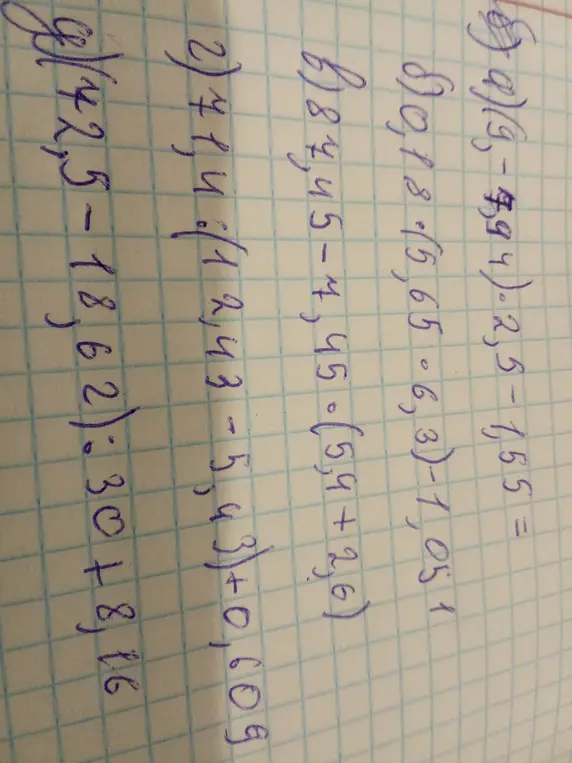 а) (9,-7,94)·2,5-1,55=
б) 0,18·(5,65·6,3)-1,051
в) 87,45-7,45·(5,4+2,6)
г) 71,4:(12,43-5,43)+0,609
д) (72,5-18,62):30+8,16